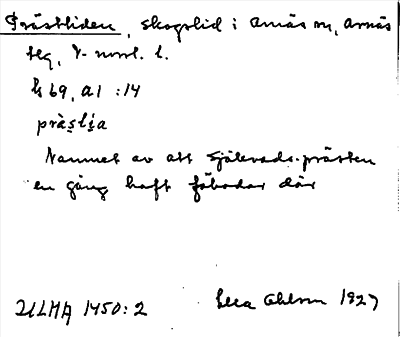 Prästliden, skogslid i Arnäs sn, Arnäs
tlg, V-norrl. l.
h 69, a1 : 14
prä̀s̩li̩a
Namnet av att Själevads-prästen
en gång haft fäbodar där
ULMA 1450:2 Lisa Ohlson 1927